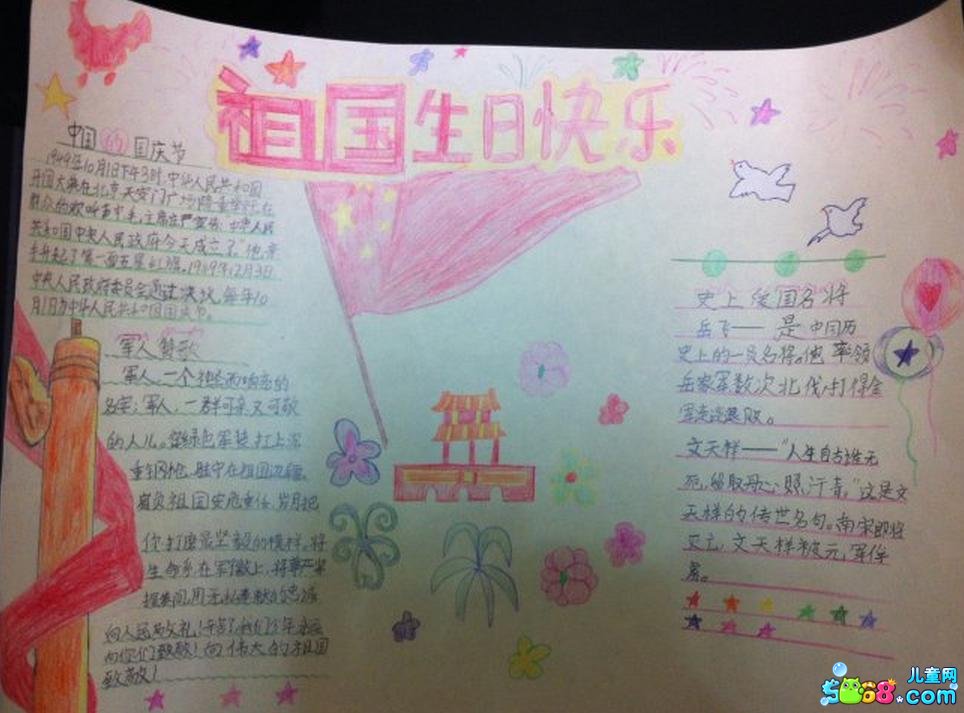 祖国生日快乐
中国的国庆节
1949年10月1日下午3时,中华人民共和国
开国大典在北京天安门广场隆重举行,在
群众的欢呼声中毛主席庄严宣告:"中华人民
共和国中央人民政府今天成立了。"他亲
手升起了第一面五星红旗。1949年12月3日
中央人民政府委员会通过决议,每年10
月1日为中华人民共和国国庆节。
军人赞歌
军人,一个神圣而响亮的
名字;军人,一群可亲又可敬
的人儿。穿绿色军装,扛上深
重钢枪,驻守在祖国边疆。
肩负祖国安危重任,岁月把
你打磨最坚毅的模样。将
生命系在军徽上,将
向人民敬礼!
向你们致敬!向伟大的祖国
致敬!
史上爱国名将
岳飞——是中国历
史上的一员名将。他率领
岳家军数次北伐,打得金
军
文天祥——"人生自古谁无
死,留取丹心照汗青。"这是文
天祥的传世名句。南宋即将
灭亡,文天祥被元军俘
虏。
5068儿童网
.com